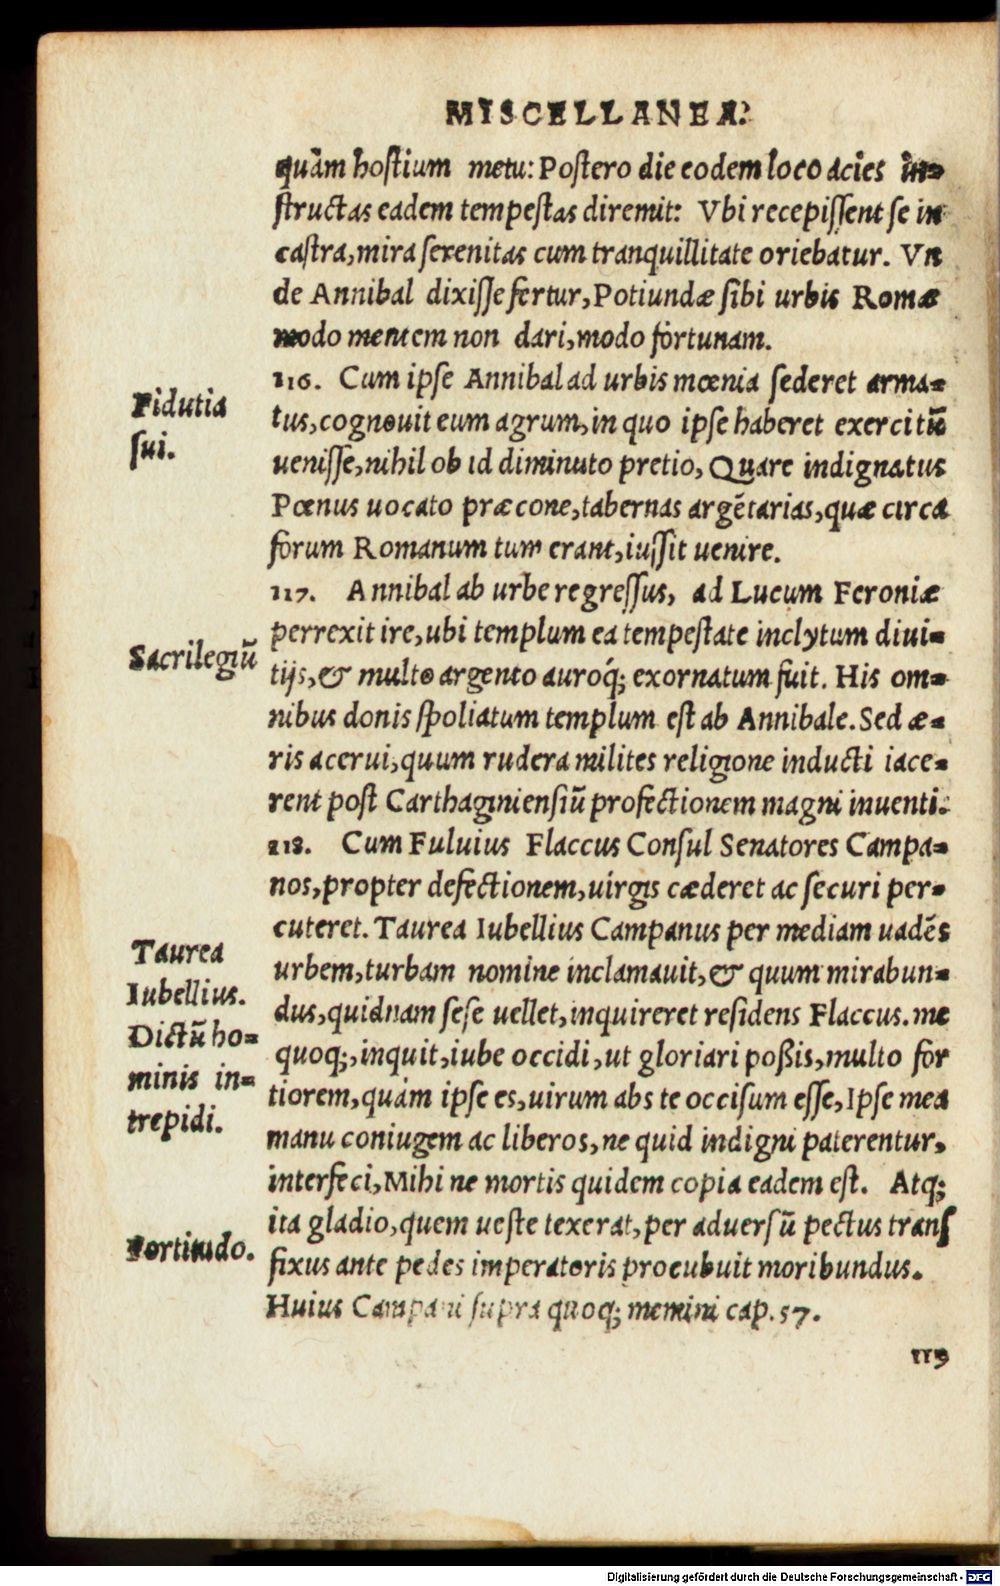 MISCELLANEA.
quàm hostium metu: Postero die eodem loco acies in-
structas eadem tempestas diremit: Vbi recepissent se in
castra, mira serenitas cum tranquillitate oriebatur. Vn
de Annibal dixisse fertur, Potiundæ sibi urbis Romæ
modo mentem non dari, modo fortunam.
116. Cum ipse Annibal ad urbis mœnia sederet arma-
Fidutia
sui.
tus, cognouit eum agrum, in quo ipse haberet exercitũ
uenisse, nihil ob id diminuto pretio, Quare indignatus
Pœnus uocato præcone, tabernas argẽtarias, quæ circa
forum Romanum tum erant, iussit uenire.
117. Annibal ab urbe regressus, ad Lucum Feroniæ
perrexit ire, ubi templum ea tempestate inclytum diui-
Sacrilegiũ
tijs, & multo argento auroq́; exornatum fuit. His om-
nibus donis spoliatum templum est ab Annibale. Sed æ-
ris acerui, quum rudera milites religione inducti iace-
rent post Carthaginiensiũ profectionem magni inuenti.
118. Cum Fuluius Flaccus Consul Senatores Campa-
nos, propter defectionem, uirgis cæderet ac securi per-
cuteret. Taurea Iubellius Campanus per mediam uadẽs
Taurea
Iubellius.
Dictũ ho-
minis in-
trepidi.
urbem, turbam nomine inclamauit, & quum mirabun-
dus, quidnam sese uellet, inquireret residens Flaccus. me
quoq;, inquit, iube occidi, ut gloriari poßis, multo for
tiorem, quàm ipse es, uirum abs te occisum esse, Ipse mea
manu coniugem ac liberos, ne quid indigni paterentur,
interfeci, Mihi ne mortis quidem copia eadem est. Atq;
ita gladio, quem ueste texerat, per aduersũ pectus trans
Fortitudo.
fixus ante pedes imperatoris procubuit moribundus.
Huius Campani supra quoq; memini cap. 57.
119
Digitalisierung gefördert durch die Deutsche Forschungsgemeinschaft - DFG